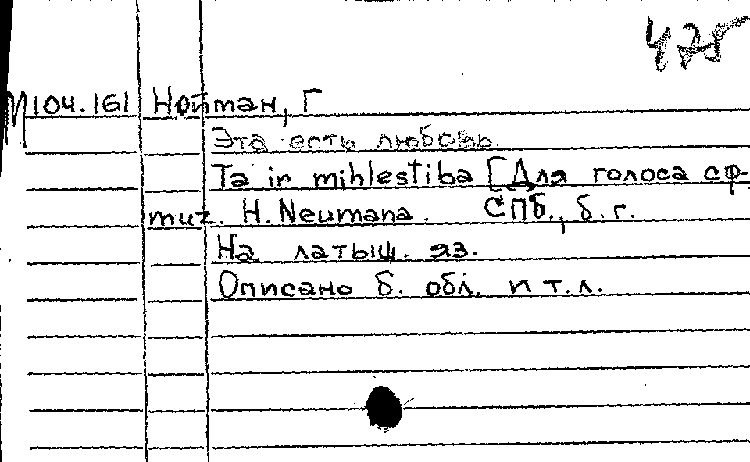 425
М104.161 Нойман, Г
Эта есть любовь
Ta ir mihlestiba [Для голоса с ф-
muz. H. Neumana. СПб., б. г.
На латыш. яз.
Описано б. обл. и т. л.